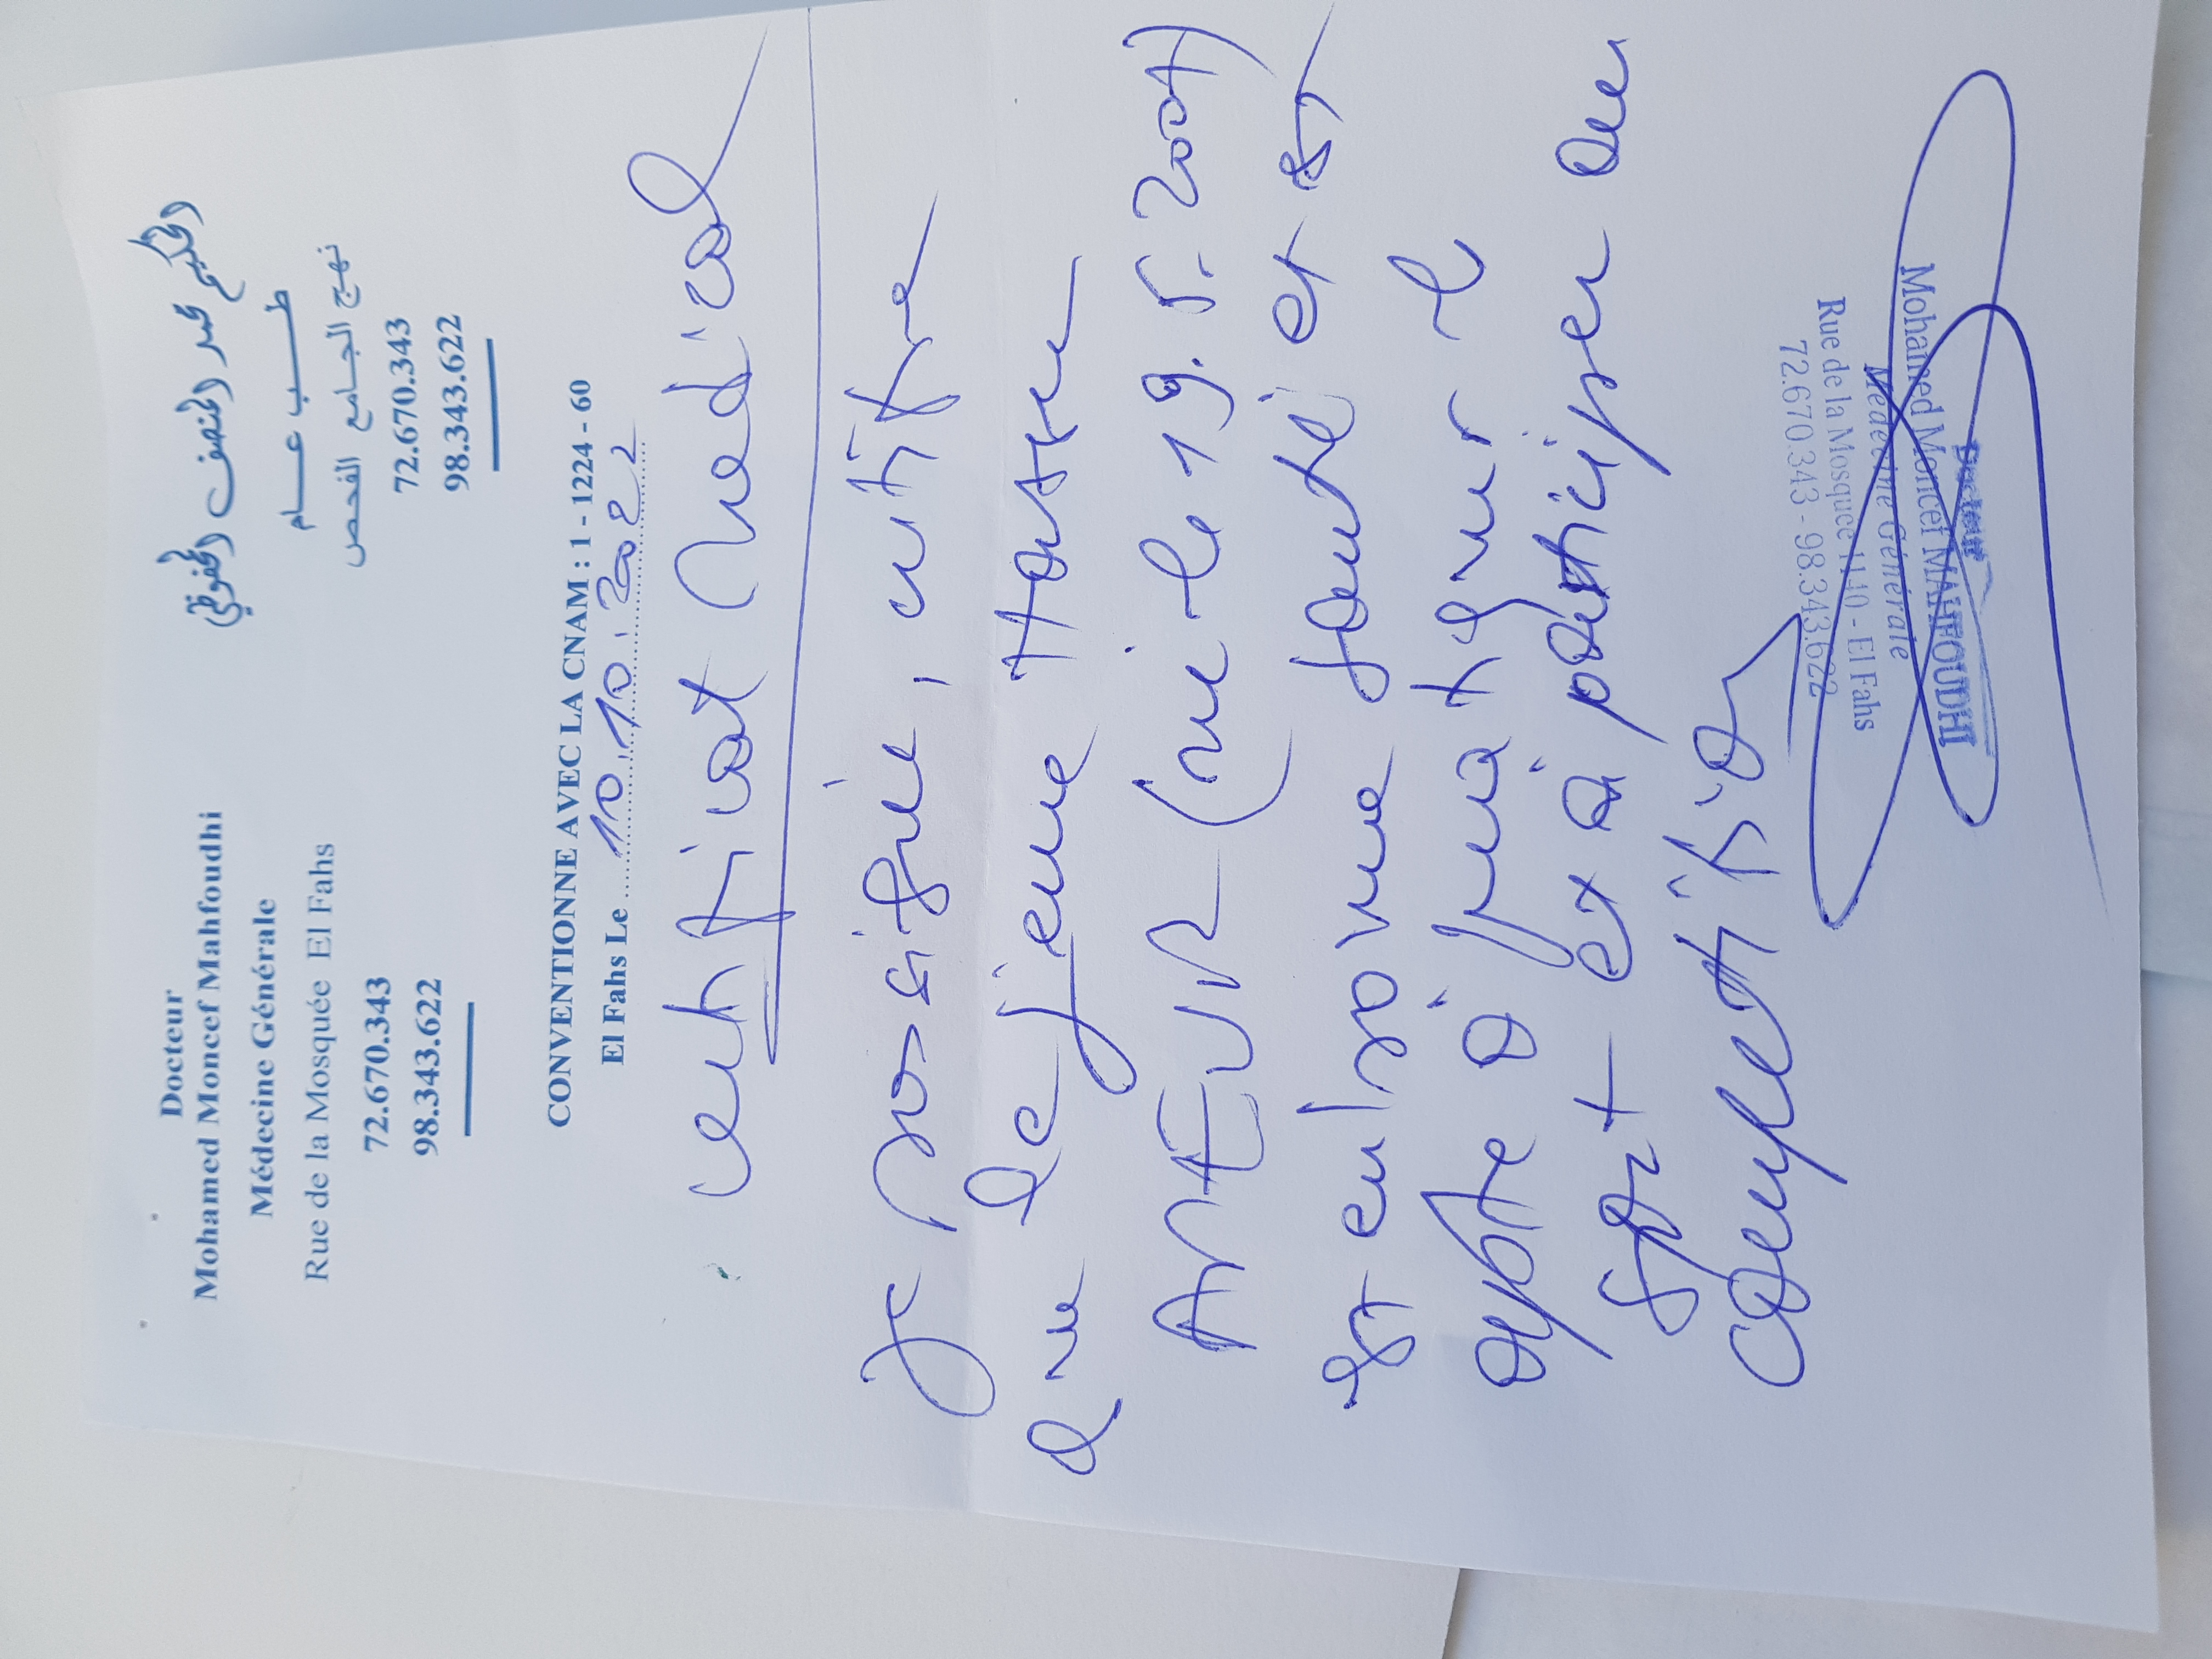 Docteur
Mohamed Moncef Mahfoudhi
Médecine Générale
Rue de la Mosquée El Fahs
72.670.343
98.343.622
الحكيم محمد المنصف المحفوظي
طب عام
نهج الجامع الفحص
72.670.343
98.343.622
CONVENTIONNE AVEC LA CNAM : 1 - 1224 - 60
El Fahs Le 10.10.2022
certificat medical
Je sossigné, certifie
que le jeune
AMEUR (né le 19.5.2007)
est en bonne santé et est
apte à pratiquer le
sport et à participer au
compétition
Docteur
Mohamed Moncef MAHFOUDHI
Médecine Générale
Rue de la Mosquée 1140 - El Fahs
72.670.343 - 98.343.622